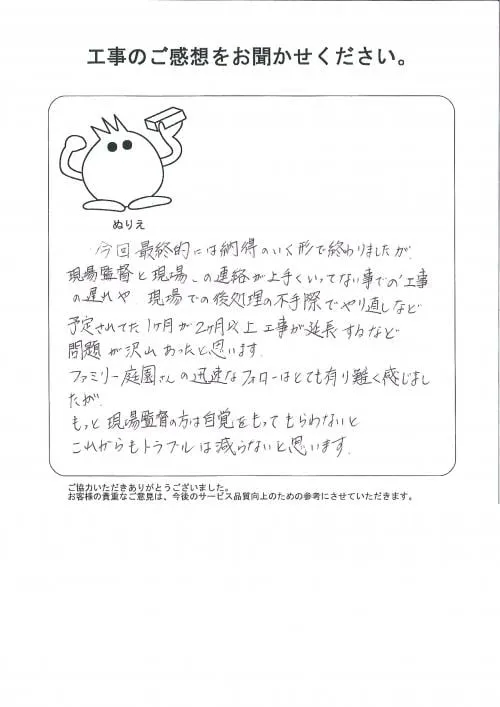 工事のご感想をお聞かせください。
ぬりえ
今回最終的には納得のいく形で終わりましたが、
現場監督と現場への連絡が上手くいってない事での工事
の遅れや 現場での後処理の不手際でやり直しなど
予定されてた1ヶ月が2ヶ月以上工事が延長するなど
問題が沢山あったと思います。
ファミリー庭園さんの迅速なフォローはとても有り難く感じまし
たが、
もっと現場監督の方は自覚をもってもらわないと
これからもトラブルは減らないと思います。
ご協力いただきありがとうございました。
お客様の貴重なご意見は、今後のサービス品質向上のための参考にさせていただきます。